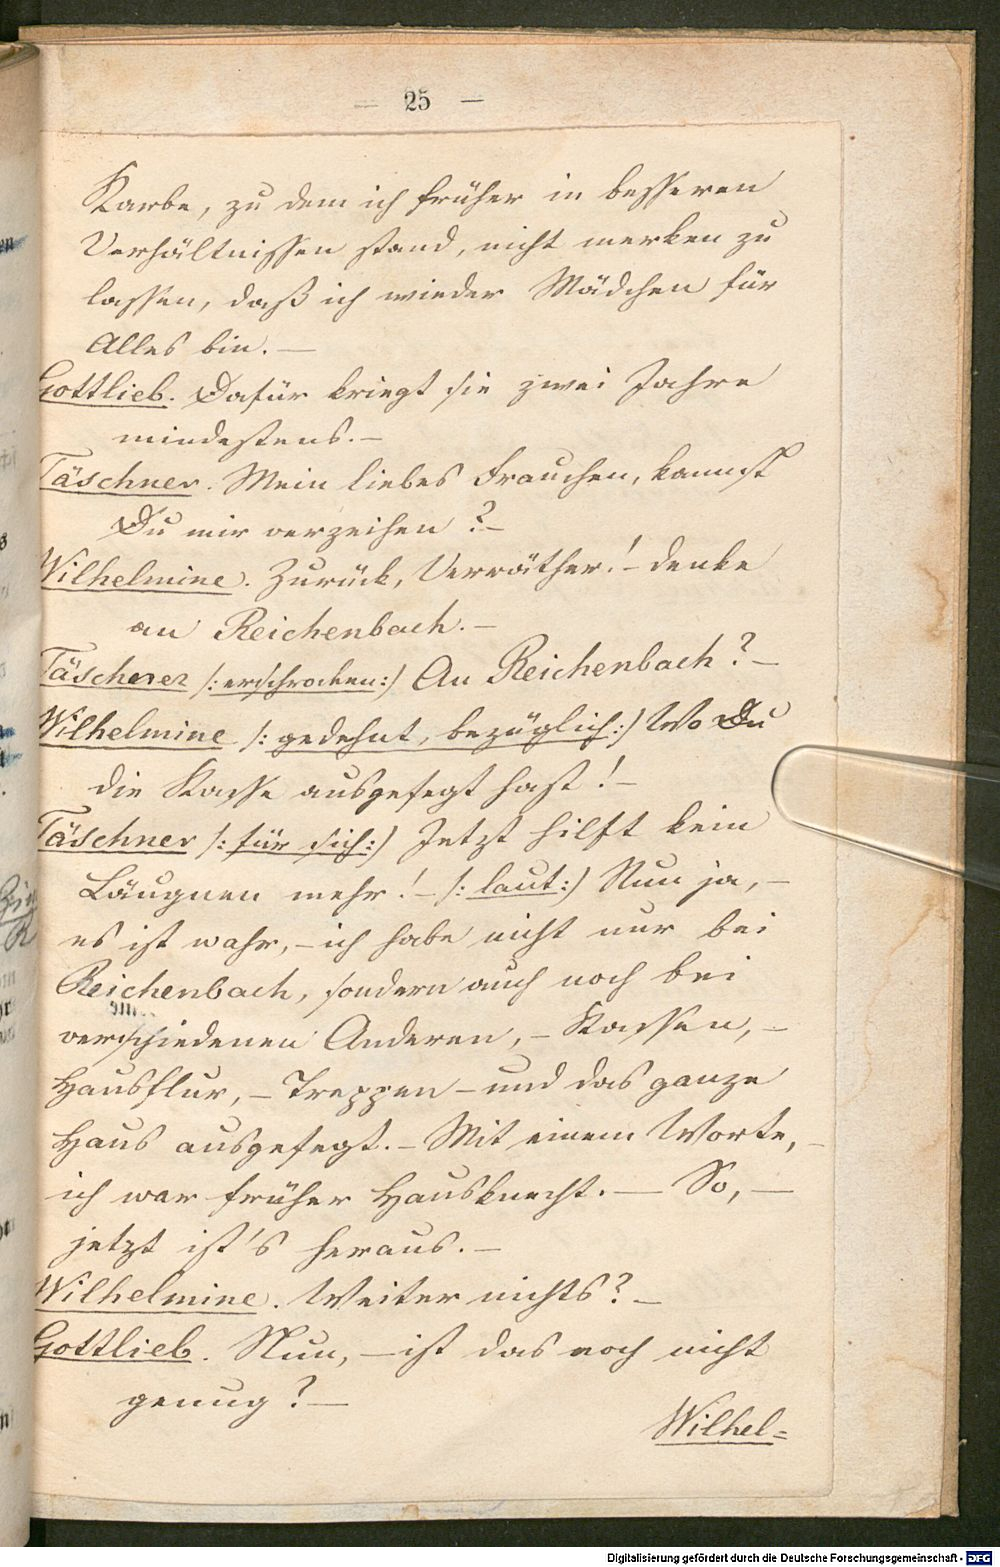 — 25 —
Karbe, zu dem ich früher in besseren
Verhältnissen stand, nicht merken zu
lassen, daß ich wieder Mädchen für
Alles bin. —
Gottlieb. Dafür kriegt sie zwei Jahre
mindestens. —
Täschner. Mein liebes Frauchen, kannst
Du mir verzeihen? —
Wilhelmine. Zurück, Verräther! — denke
an Reichenbach. —
Täschner /: erschrocken :/ An Reichenbach? —
Wilhelmine /: gedehnt, bezüglich :/ Wo Du
die Kasse ausgefegt hast! —
Täschner /: für sich :/ Jetzt hilft kein
Läugnen mehr! — /: laut :/ Nun ja, —
es ist wahr, — ich habe nicht nur bei
Reichenbach, sondern auch noch bei
verschiedenen Anderen, — Kassen, —
Hausflur, — Treppen — und das ganze
Haus ausgefegt. — Mit einem Worte, —
ich war früher Hausknecht. — So, —
jetzt ist's heraus. —
Wilhelmine. Weiter nichts? —
Gottlieb. Nun, — ist das noch nicht
genug? —
Wilhel=
Digitalisierung gefördert durch die Deutsche Forschungsgemeinschaft - DFG